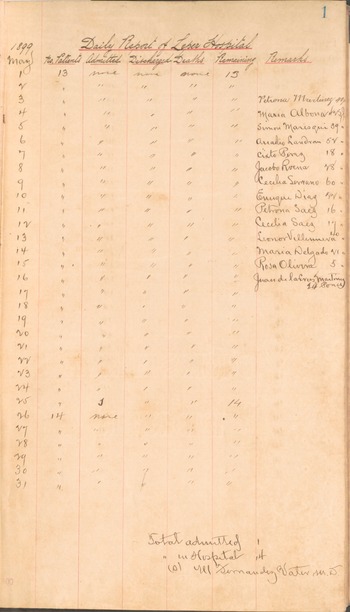 1
1899 Daily Report of Leper Hospital
May No. Patients Admitted Discharged Deaths Remaining Remarks
1 13 none none none 13
2 " " " " "
3 " " " " " Petrona Martinez
4 " " " " " Maria Albona
5 " " " " " Simon 39
6 " " " " " 58
7 " " " " " Perez 18
8 " " " " " Jacobo 28
9 " " " " " Cecilia Serrano 60
10 " " " " " Enrique Diaz
11 " " " " " Petrona Saez 16
12 " " " " " Cecilia Saez 17
13 " " " " " Leonor Villanueva
14 " " " " " Maria Delgado 21
15 " " " " " Rosa Olivera 3
16 " " " " " Juan de la Cruz Martinez
17 " " " " "
18 " " " " "
19 " " " " "
20 " " " " "
21 " " " " "
22 " " " " "
23 " " " " "
24 " " " " "
25 " 1 " " 14
26 14 none " " "
27 " " " " "
28 " " " " "
29 " " " " "
30 " " " " "
31 " " " " "
Total admitted 1
" in Hospital 14
Fernandez M.D.